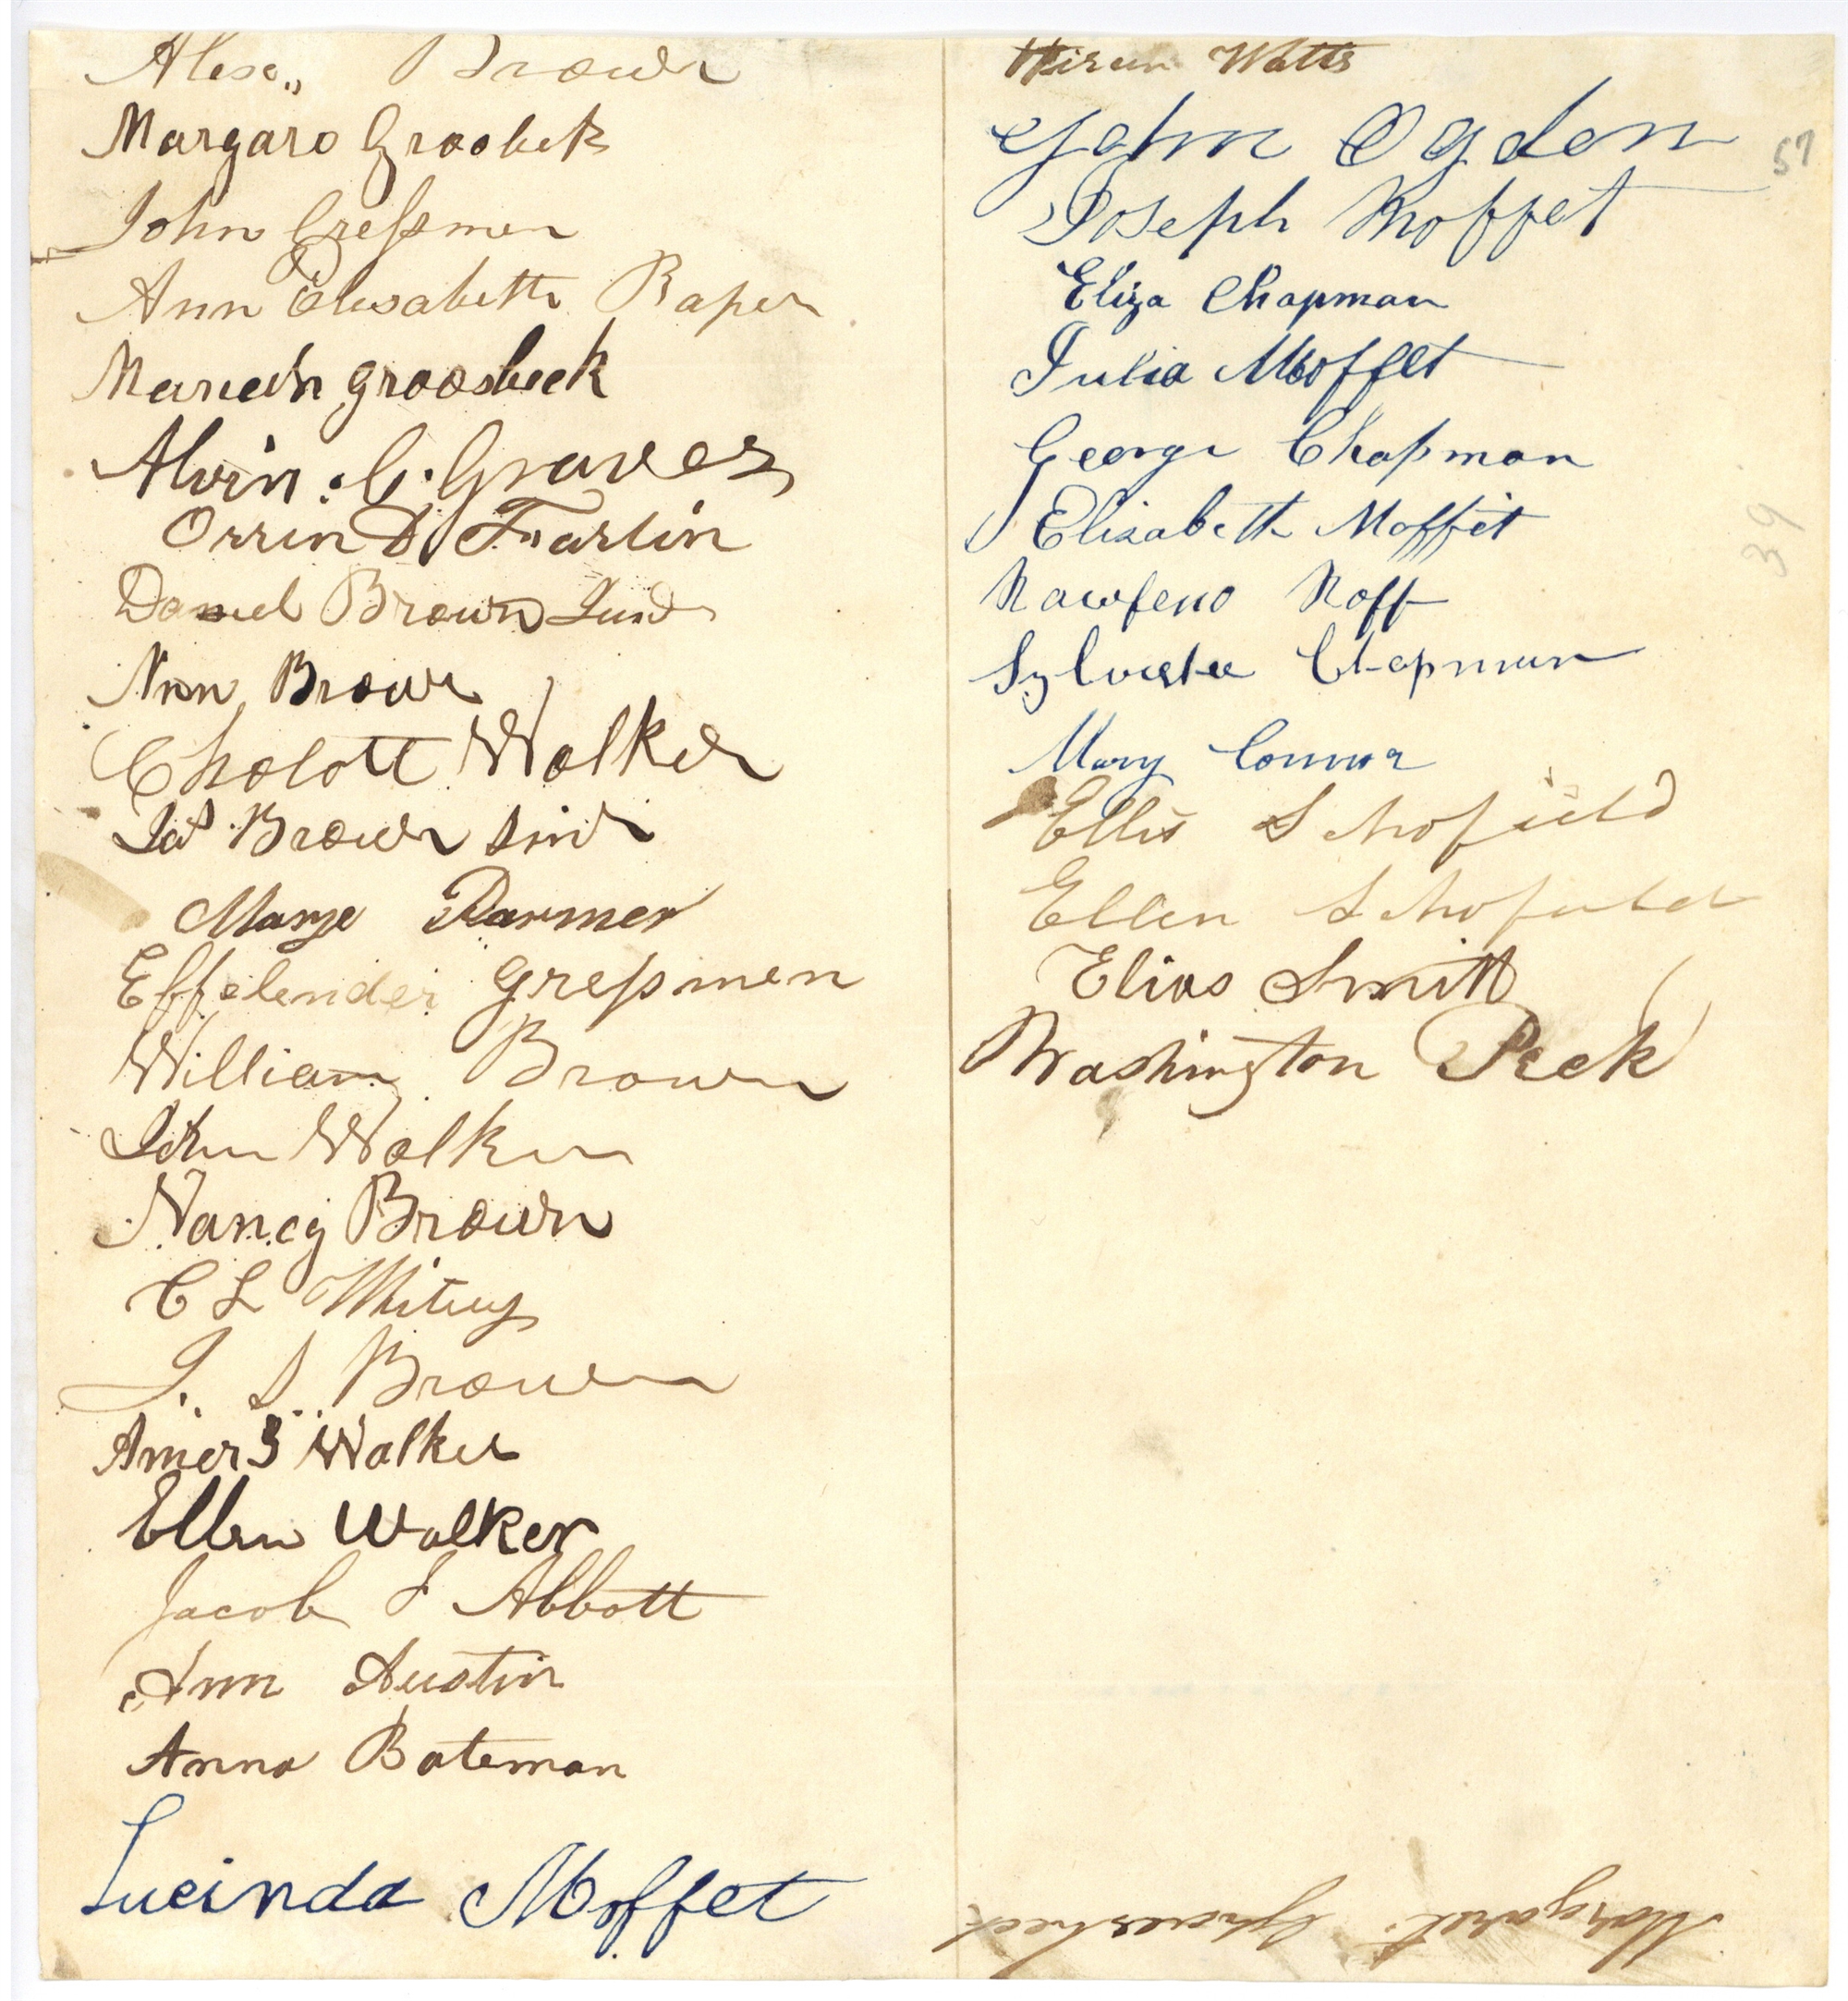 Alexr., Brown
Margaro Groobek
John Cressmen
Ann Elisabeth Raper
groosbeck
Alvin . C. Graves
Orrin D Farlin
Daniel Brown
Ann Brown
Cholott Walker
Brown
Marye Darmer
Effelender gressmen
William Brown
John Walker
Nancy Brown
C L Whitney
J. S. Brown
Amer S Walker
Ellen Walker
Jacob J Abbott
Ann Austin
Anna Bateman
Lucinda Moffet
Hiram Watts
John Ogden
57
Joseph Moffet
Eliza Chapman
Julia Moffet
George Chapman
Elisabeth Moffet
39
Roff
Sylvester Chapman
Mary Connor
Ellis Schofield
Ellen Schofield
Elias Smith
Washington Peek
Margaret